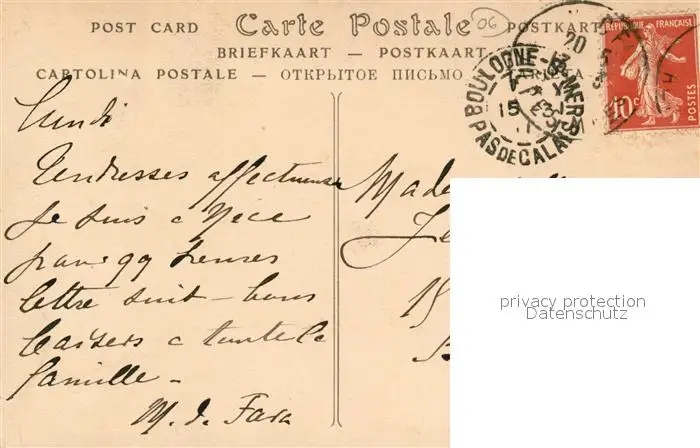 POST CARD Carte Postale POSTKARTE
06
BRIEFKAART — POSTKAART
CARTOLINA POSTALE — ОТКРЫТОЕ ПИСЬМО
BOULOGNE-S-MER
PAS DE CALAIS
15
20
REPUBLIQUE FRANÇAISE
10c
POSTES
Lundi
Tendresses affectueuses
Je suis a Nice
pour 99 heures
lettre suit - bons
baisers a toute la
famille -
M. d. Fara
Made
15
privacy protection
Datenschutz